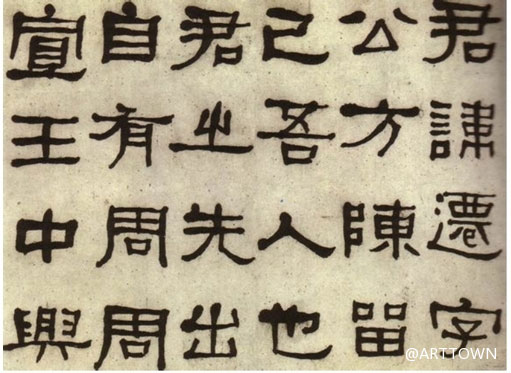 君諱遷字
公方陳留
己吾人也
君之先出
自有周周
宣王中興
@ARTTOWN